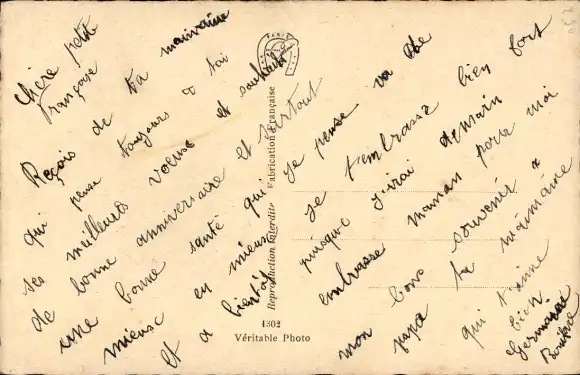 Chère petite
Françoise
Reçois de ta marraine
qui pense toujours à toi
ses meilleurs voeux et souhaits
de bonne anniversaire et surtout
une bonne santé qui
mieux en mieux
et a bientôt
je pense va
je t'embrasse bien fort
puisque j'irai demain
embrasse maman pour moi
mon bons souvenir a
papa ta marraine
qui t'aime
bien
Germaine
PARIS
Fabrication Française
Reproduction Interdite
1302
Véritable Photo